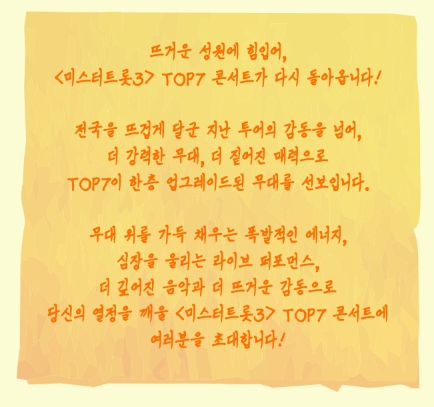 뜨거운 성원에 힘입어,
<미스터트롯3> TOP7 콘서트가 다시 돌아옵니다!
전국을 뜨겁게 달군 지난 투어의 감동을 넘어,
더 강력한 무대, 더 짙어진 매력으로
TOP7이 한층 업그레이드된 무대를 선보입니다.
무대 위를 가득 채우는 폭발적인 에너지,
심장을 울리는 라이브 퍼포먼스,
더 깊어진 음악과 더 뜨거운 감동으로
당신의 열정을 깨울 <미스터트롯3> TOP7 콘서트에
여러분을 초대합니다!